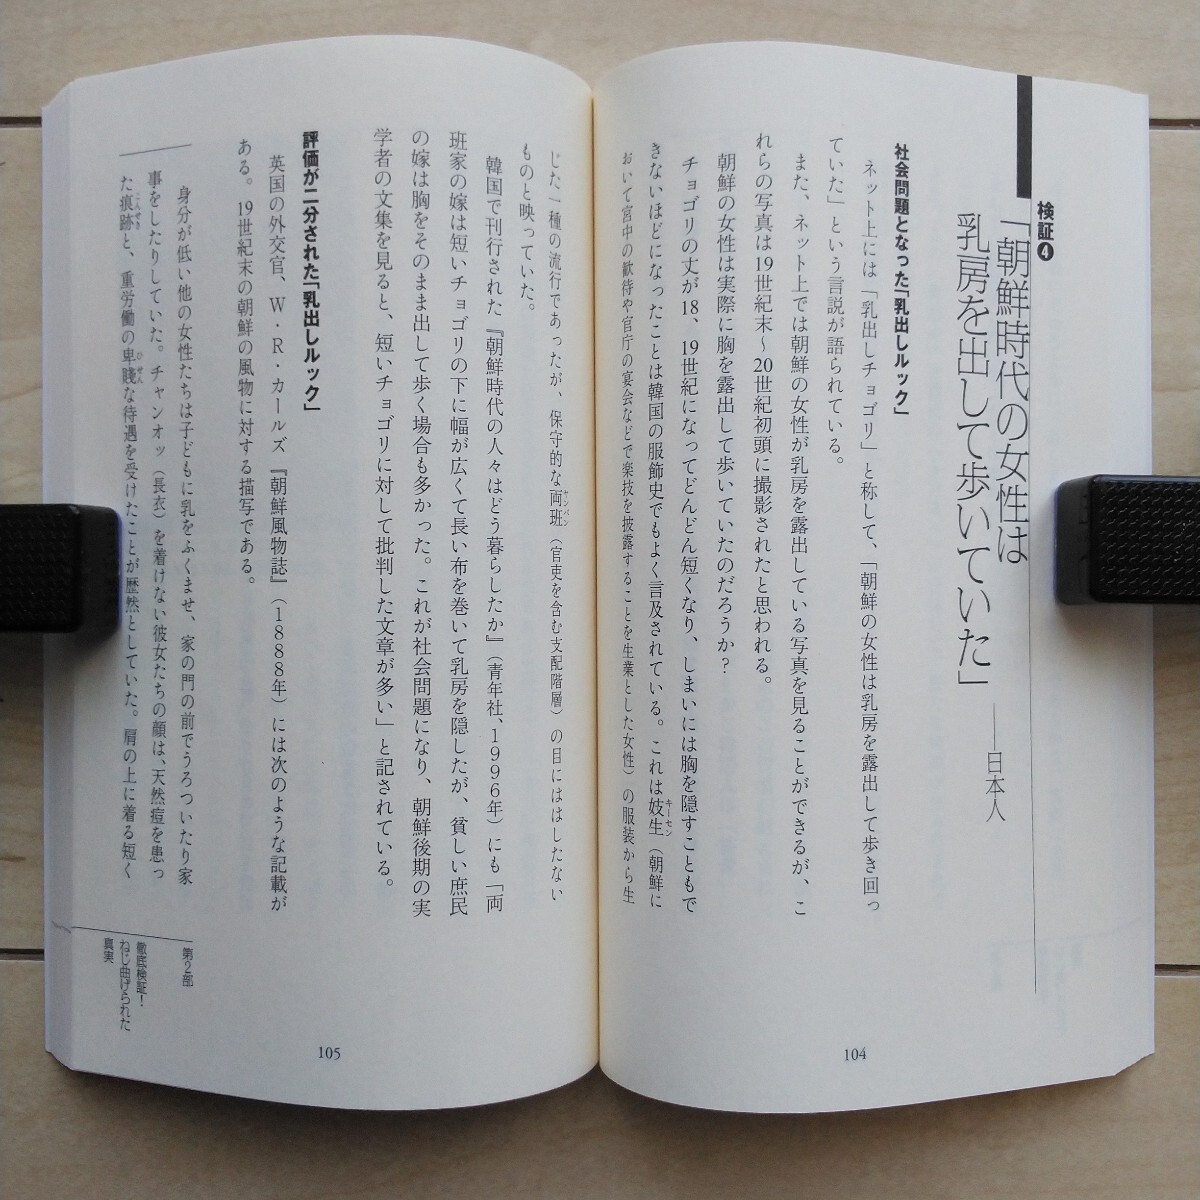 検証❹
「朝鮮時代の女性は
乳房を出して歩いていた」
――日本人
社会問題となった「乳出しルック」
ネット上には「乳出しチョゴリ」と称して、「朝鮮の女性は乳房を露出して歩き回っ
ていた」という言説が語られている。
また、ネット上では朝鮮の女性が乳房を露出している写真を見ることができるが、こ
れらの写真は19世紀末〜20世紀初頭に撮影されたと思われる。
朝鮮の女性は実際に胸を露出して歩いていたのだろうか？
チョゴリの丈が18、19世紀になってどんどん短くなり、しまいには胸を隠すこともで
きないほどになったことは韓国の服飾史でもよく言及されている。これは妓生（朝鮮に
キーセン
おいて宮中の歓待や官庁の宴会などで楽技を披露することを生業とした女性）の服装から生
104
じた一種の流行であったが、保守的な両班（官吏を含む支配階層）の目にははしたない
ヤンバン
ものと映っていた。
韓国で刊行された『朝鮮時代の人々はどう暮らしたか』（青年社、1996年）にも「両
班家の嫁は短いチョゴリの下に幅が広くて長い布を巻いて乳房を隠したが、貧しい庶民
の嫁は胸をそのまま出して歩く場合も多かった。これが社会問題になり、朝鮮後期の実
学者の文集を見ると、短いチョゴリに対して批判した文章が多い」と記されている。
評価が二分された「乳出しルック」
英国の外交官、W・R・カールズ『朝鮮風物誌』（1888年）には次のような記載が
ある。19世紀末の朝鮮の風物に対する描写である。
身分が低い他の女性たちは子どもに乳をふくませ、家の門の前でうろついたり家
事をしたりしていた。チャンオッ（長衣）を着けない彼女たちの顔は、天然痘を患っ
た痕跡と、重労働の卑賤な待遇を受けたことが歴然としていた。肩の上に着る短く
こんせき
ひせん
第2部
徹底検証！
ねじ曲げられた
真実
105